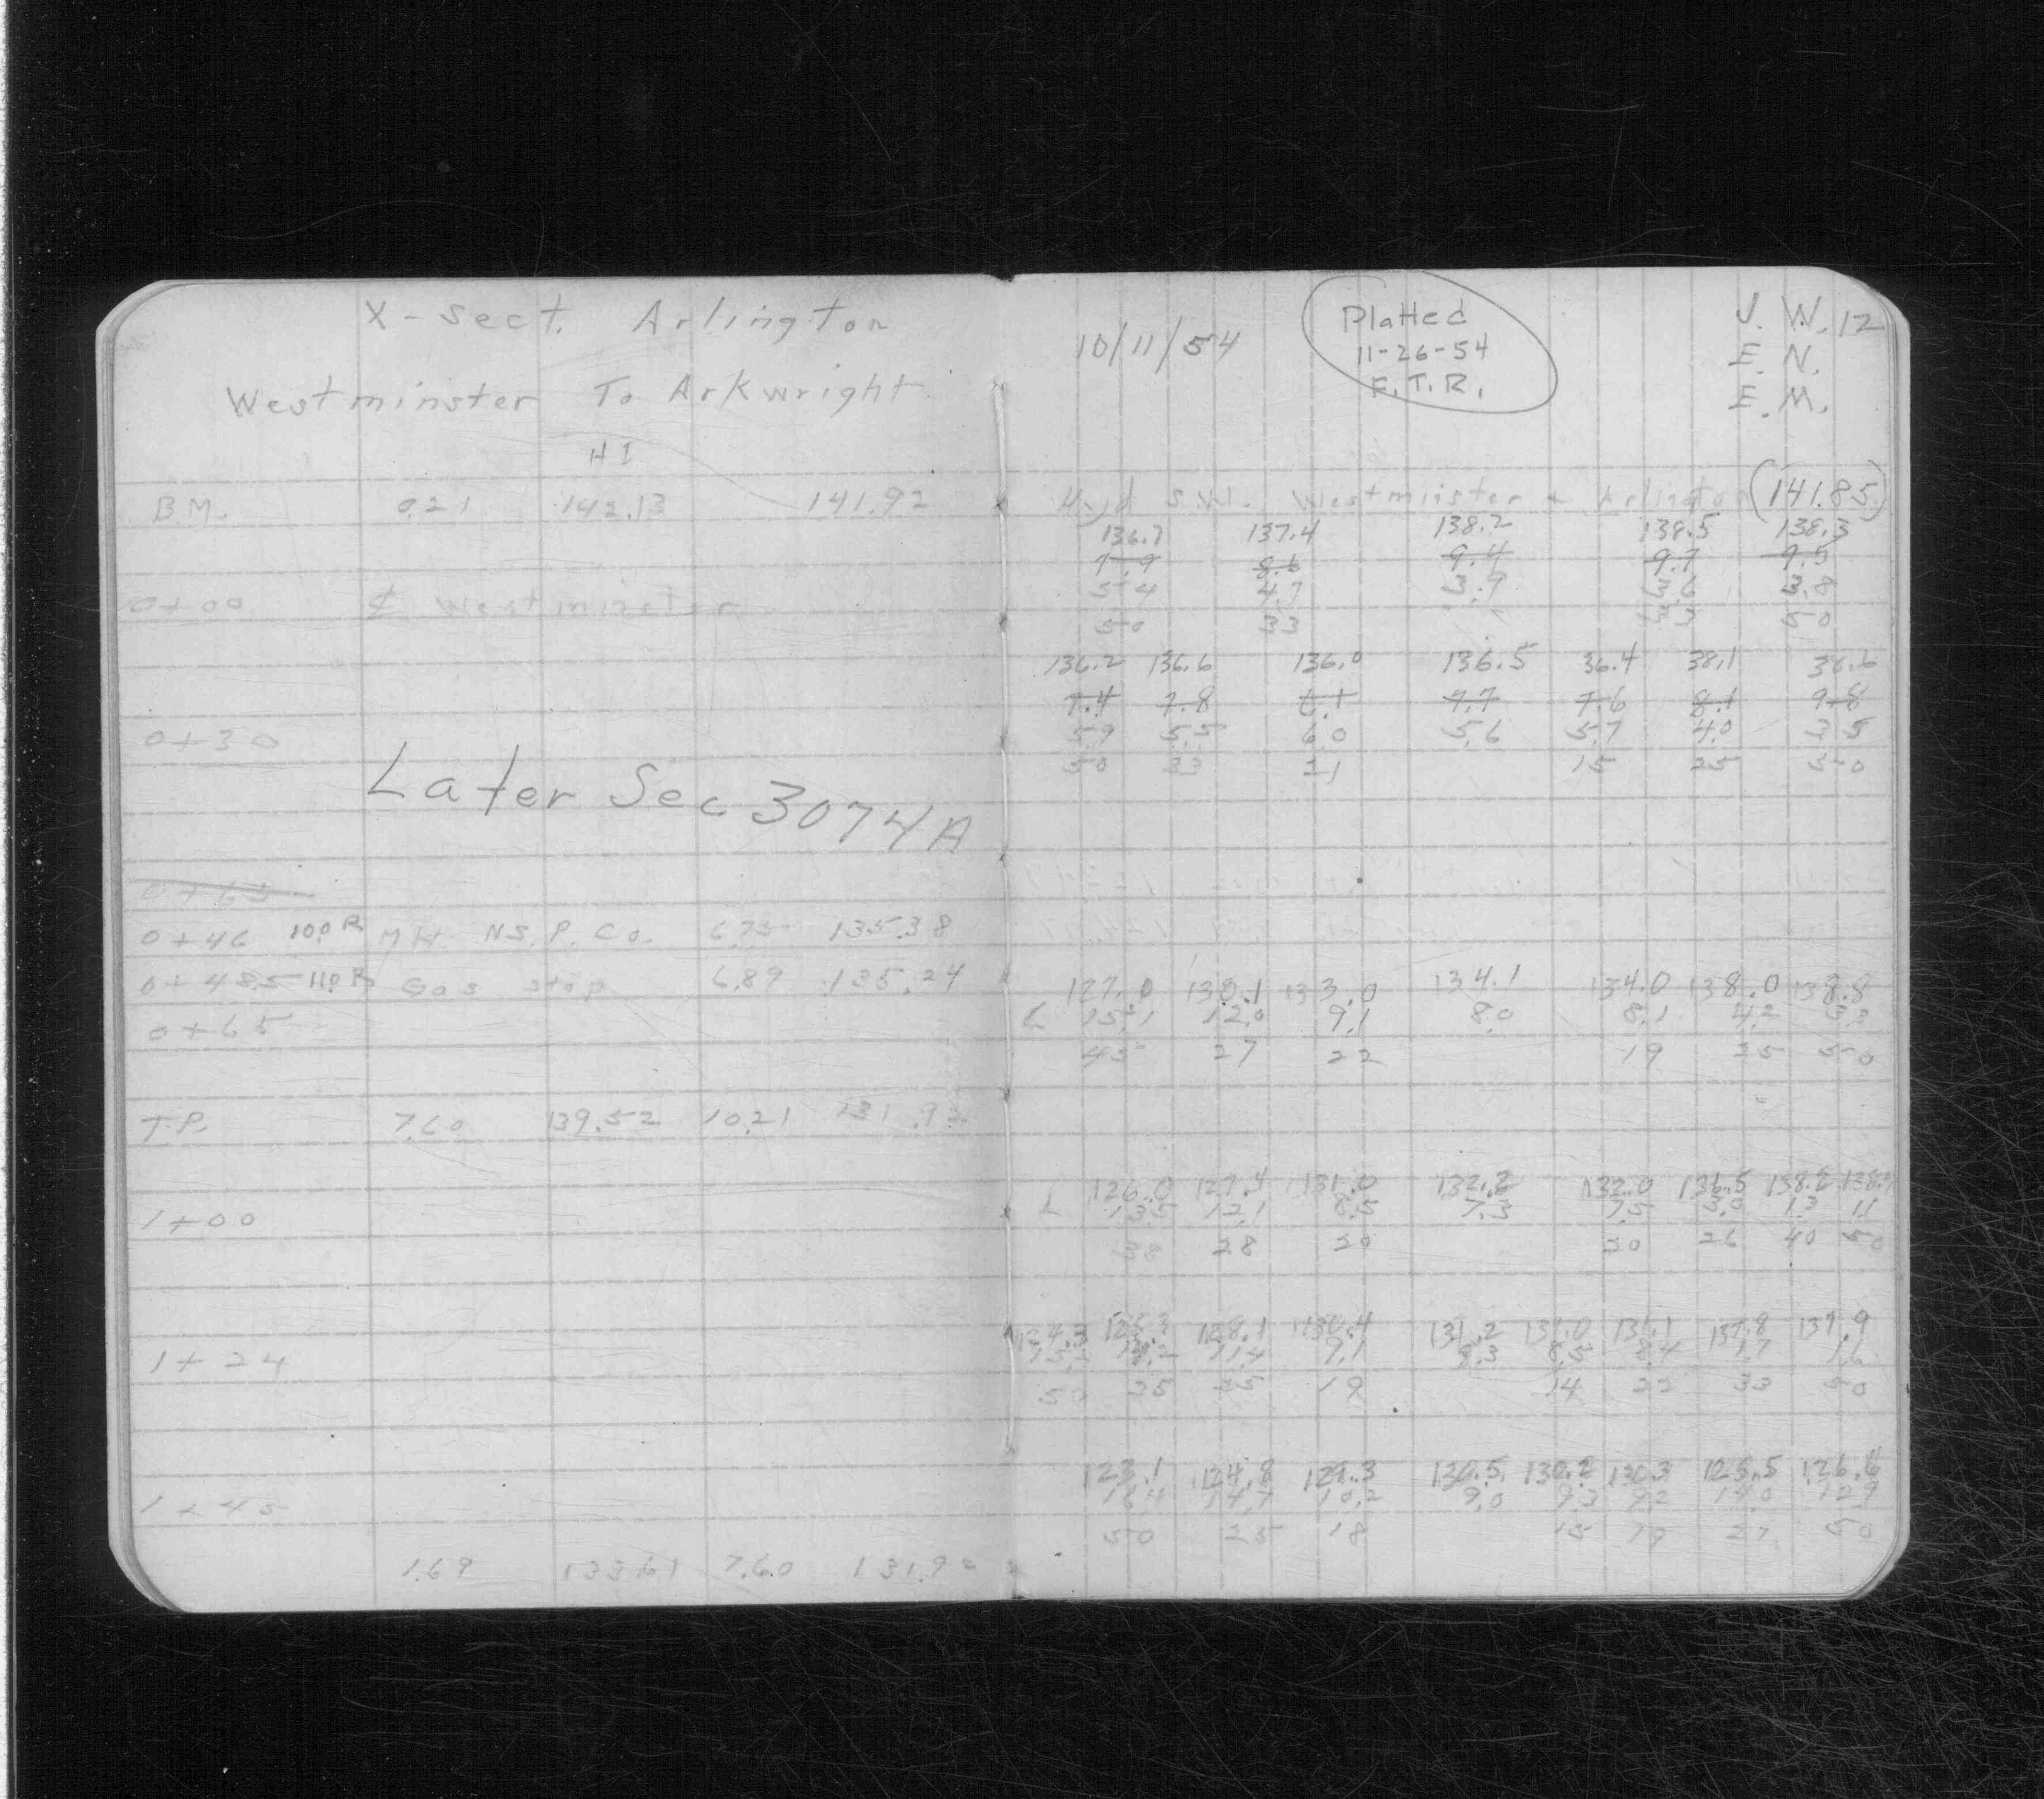 X-Sect. Arlington
Westminster To Arkwright
HI
B.M. 0.21 142.13 141.92
0+00 ℄ Westminster
0+30
Later Sec 3074A
0+65
0+46 10.0 R MH. N.S.P. Co. 6.75 135.38
0+48.5 11.0 R Gas Stop 6.89 135.24
0+65
T.P. 7.60 139.52 10.21 131.92
1+00
1+24
1+45
1.69 133.61 7.60 131.92
10/11/54
Platted
11-26-54
F.T.R.
J. W. 12
E. N.
E. M.
Hyd S.W. Westminster & Arlington (141.85)
136.7 137.4 138.2 138.5 138.3
7.9 8.6 9.4 9.7 9.5
5.4 4.7 3.9 3.6 3.8
50 33 33 50
136.2 136.6 136.0 136.5 36.4 38.1 38.6
7.4 7.8 7.7 7.6 9.8
5.9 5.5 6.0 5.6 5.7 4.0 3.5
50 33 21 15 25 50
127.0 130.1 133.0 134.1 134.0 138.0 138.8
L 15.1 12.0 9.1 8.0 8.1 4.2 3.3
45 27 22 19 35 50
126.0 127.4 131.0 132.2 132.0 136.5 138.2
L 13.5 12.1 8.5 7.3 7.5 3.0 1.3 1.1
38 28 20 20 26 40 50
124.3 128.1 130.4 131.2 131.0 131.1 137.8 137.9
15.2 11.4 9.1 8.3 8.5 8.4 1.7 1.6
50 35 25 19 14 22 33 50
123.1 124.8 129.3 130.5 130.2 130.3 125.5 126.6
16.4 14.7 10.2 9.0 9.3 9.2 14.0 12.9
50 25 18 15 19 27 50